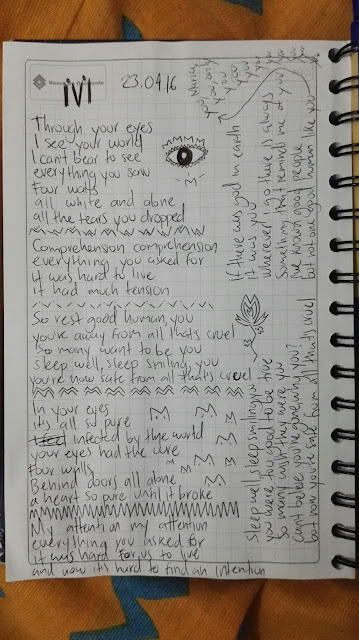 M
23.04.16
Through your eyes
I see your world
I can't bear to see
everything you saw
Four walls
all white and alone
all the tears you dropped
Comprehension comprehension
everything you asked for
it was hard to live
it had much tension
So rest good human, you
you're away from all that's cruel
So many want to be you
sleep well, sleep smiling, you
you're now safe from all that's cruel
In your eyes
it's all so pure
infected by the world
your eyes had the cure
Four walls
Behind doors all alone
a heart so pure until it broke
My attention my attention
everything you asked for
it was hard for us to live
and now it's hard to find an intention
Sleep well, sleep smiling, you
you were too good to be true
So many wish they were you
can't believe you're gone, why you?
but now you're safe from all that's cruel
If there was god in earth
it was you
wherever I go there is always
Something that reminds me of you
I've known good people
but not one good human like you
you, only
you
you
you
you
you
you